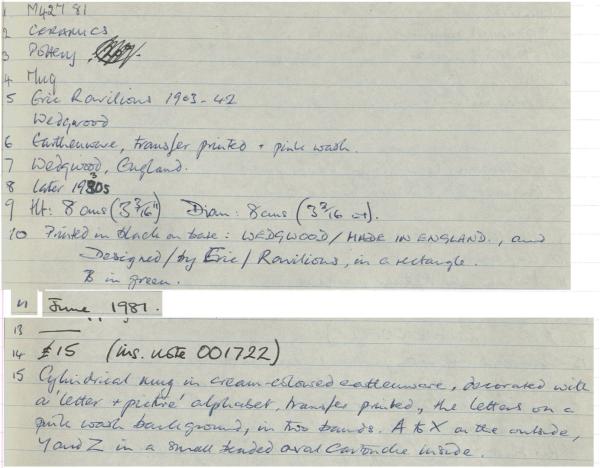 1 M427 81
2 CERAMICS
3 Pottery
4 Mug
5 Eric Ravilious 1903-42
Wedgwood
6 Earthenware, transfer printed + pink wash.
7 Wedgwood, England.
8 later 1930s
9 Ht: 8 cms (3 3/16") Diam: 8 cms (3 3/16 in).
10 Printed in black on base: WEDGWOOD/MADE IN ENGLAND., and
Designed/by Eric/Ravilious, in a rectangle.
B in green.
11 June 1981.
13
14 £15 (ins. note 001722)
15 Cylindrical mug in cream-coloured earthenware, decorated with
a 'letter + picture' alphabet, transfer printed, the letters on a
pink wash background, in two bands. A to X on the outside,
Y and Z in a small tended oval cartouche inside.